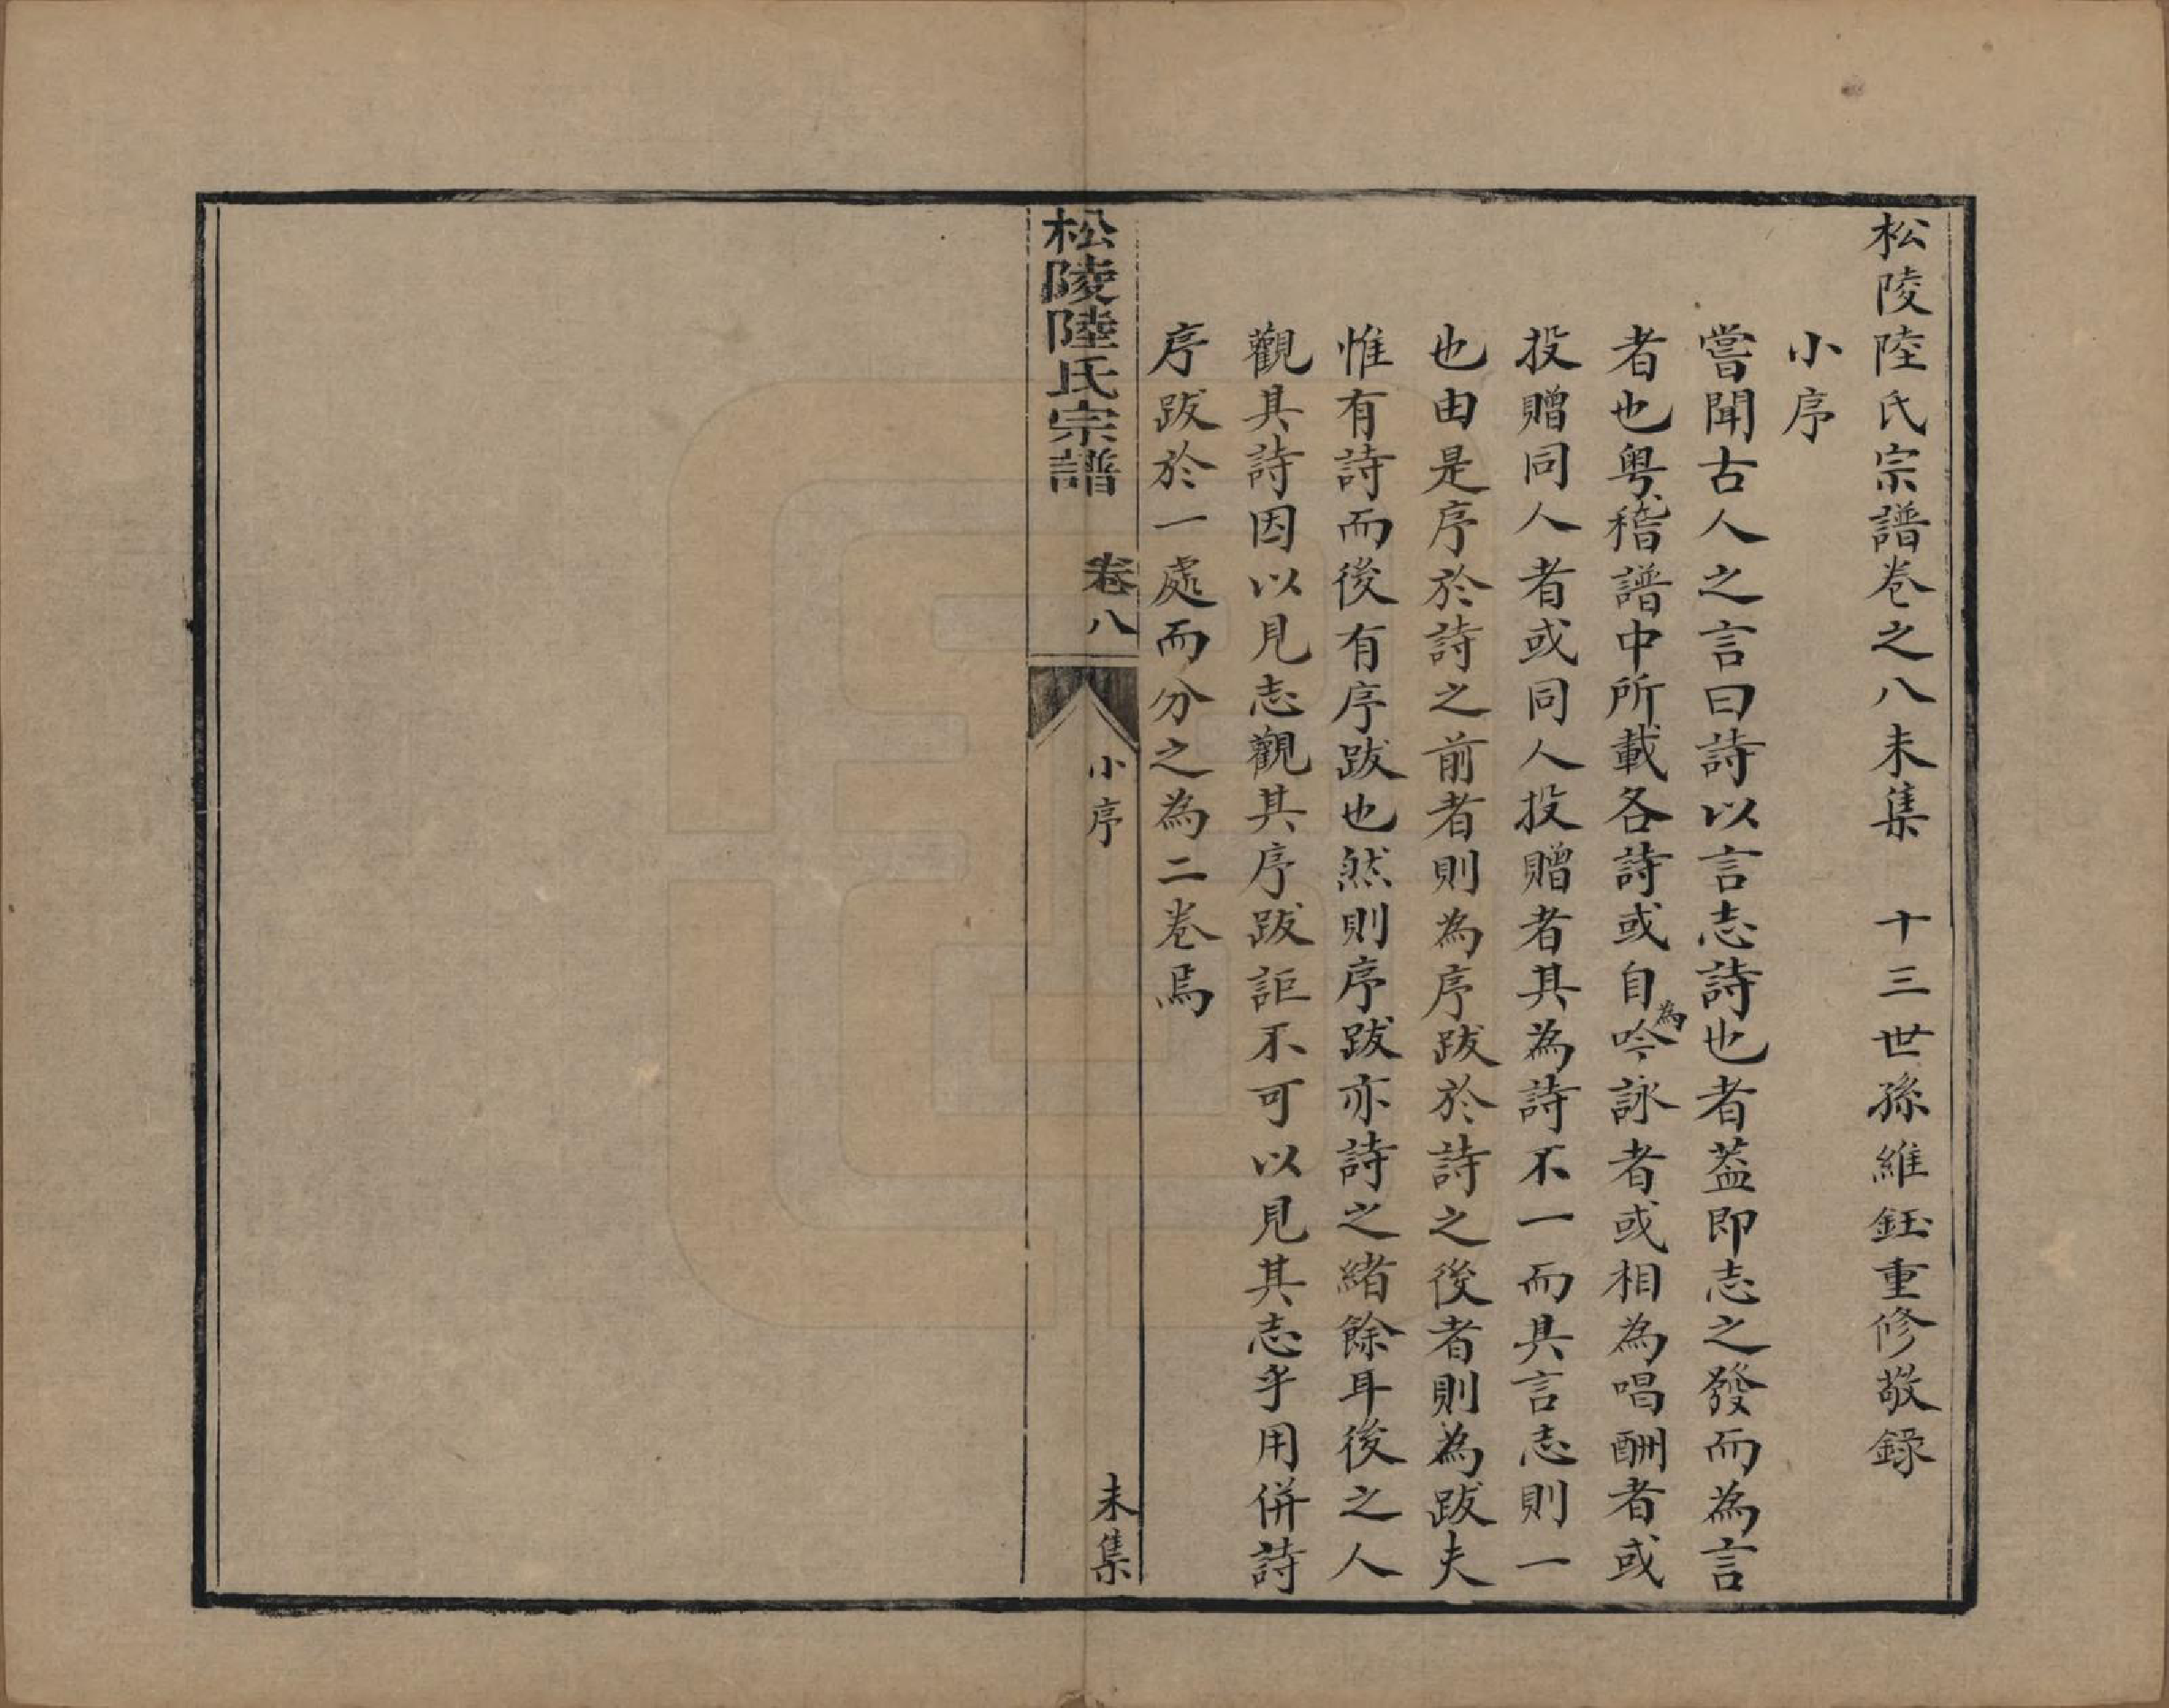 松陵陸氏宗譜卷之八未集　十三世孫維鈺重修敬錄
小序
嘗聞古人之言曰詩以言志詩也者葢即志之發而為言
者也粤稽譜中所載各詩或自為吟詠者或相為唱酬者或
投贈同人者或同人投贈者其為詩不一而其言志則一
也由是序於詩之前者則為序跋於詩之後者則為跋夫
惟有詩而後有序跋也然則序跋亦詩之緒餘耳後之人
觀其詩因以見志觀其序跋詎不可以見其志乎用併詩
序跋於一處而分之為二卷焉
松陵陸氏宗譜　卷八　小序　未集